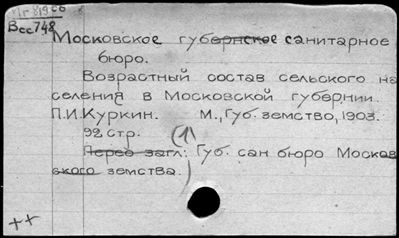 Всс748
Московское губернское санитарное
бюро.
Возрастный состав сельского на
селения в Московской губернии.
П.И.Куркин. М., Губ. земство, 1903.
92 стр. (1)
Перед загл: Губ. сан бюро Москов
ского земства.)
++